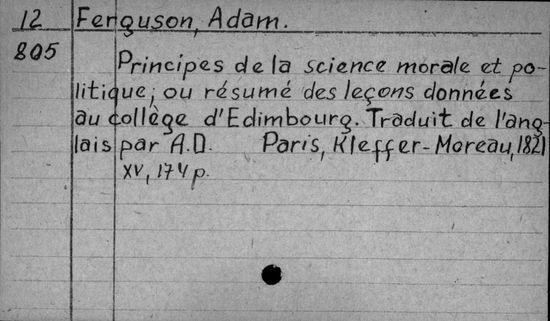 12 Ferguson, Adam.
805
Principes de la science morale et po-
litique; ou résumé des leçons données
au collège d'Edimbourg. Traduit de l'ang-
lais par A.D. Paris, Kleffer-Moreau, 1821
XV, 174 p.